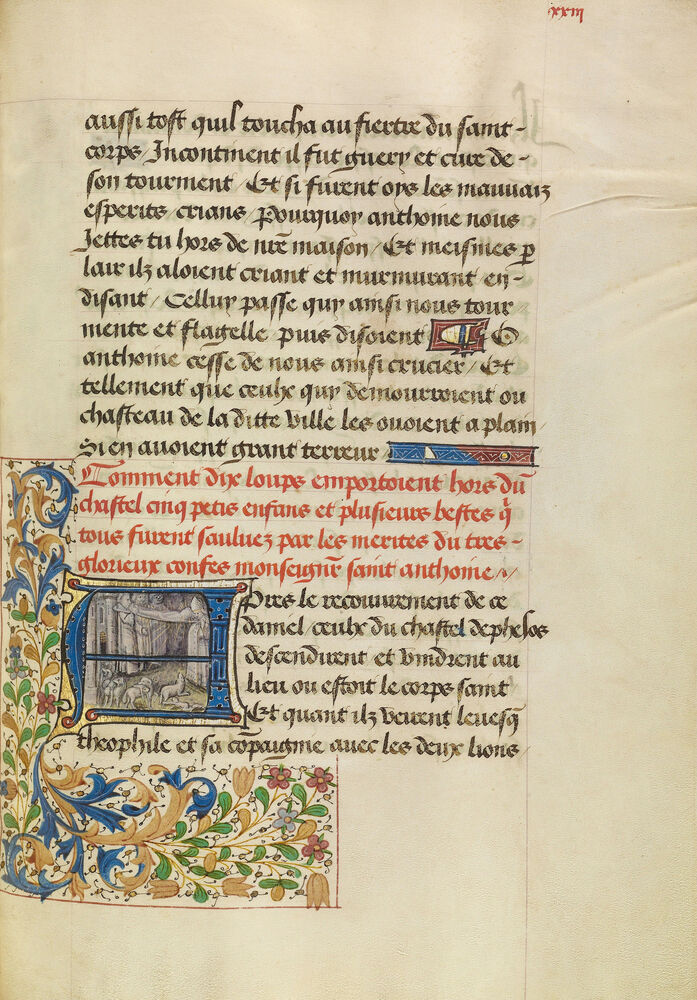 xxiij
aussi tost quil toucha au fiertre du saint-
corps / Incontinent il fut guery et cure de-
son tourment / Et si furent oys les mauuaiz
esperits / crians / pourquoy anthoine nous
Jettes tu hors de nr̄e maison / Et meismes ꝑ
lair ilz aloient criant et murmurant en-
disant / Celluy passe quy ainsi nous tour
mente et flagelle puis disoient O
anthoine cesse de nous ainsi crucier / Et
tellement que ceulx quy demourroient ou
chasteau de la ditte ville les ouoient a plain
Si en auoient grant terreur
Comment dix loups emportoient hors du
chastel cinq petis enfans et plusieurs bestes q̄
tous furent sauluez par les merites du tres-
glorieux confes monseignr̄ saint anthoine /
Apres le recouurement de ce
daniel / ceulx du chastel de phelos
descendirent et vindrent au
lieu ou estoit le corps saint
Et quant ilz veirent leuesq̄
theophile et sa cōpaignie auec les deux lions